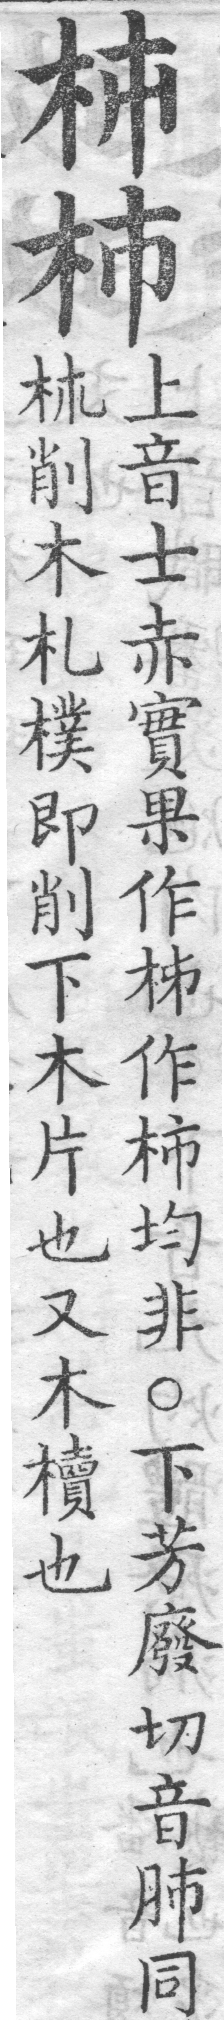 柹杮
上音士赤實果作柹作柿均非○下芳廢切音肺同
削木札樸即削下木片也又木櫝也